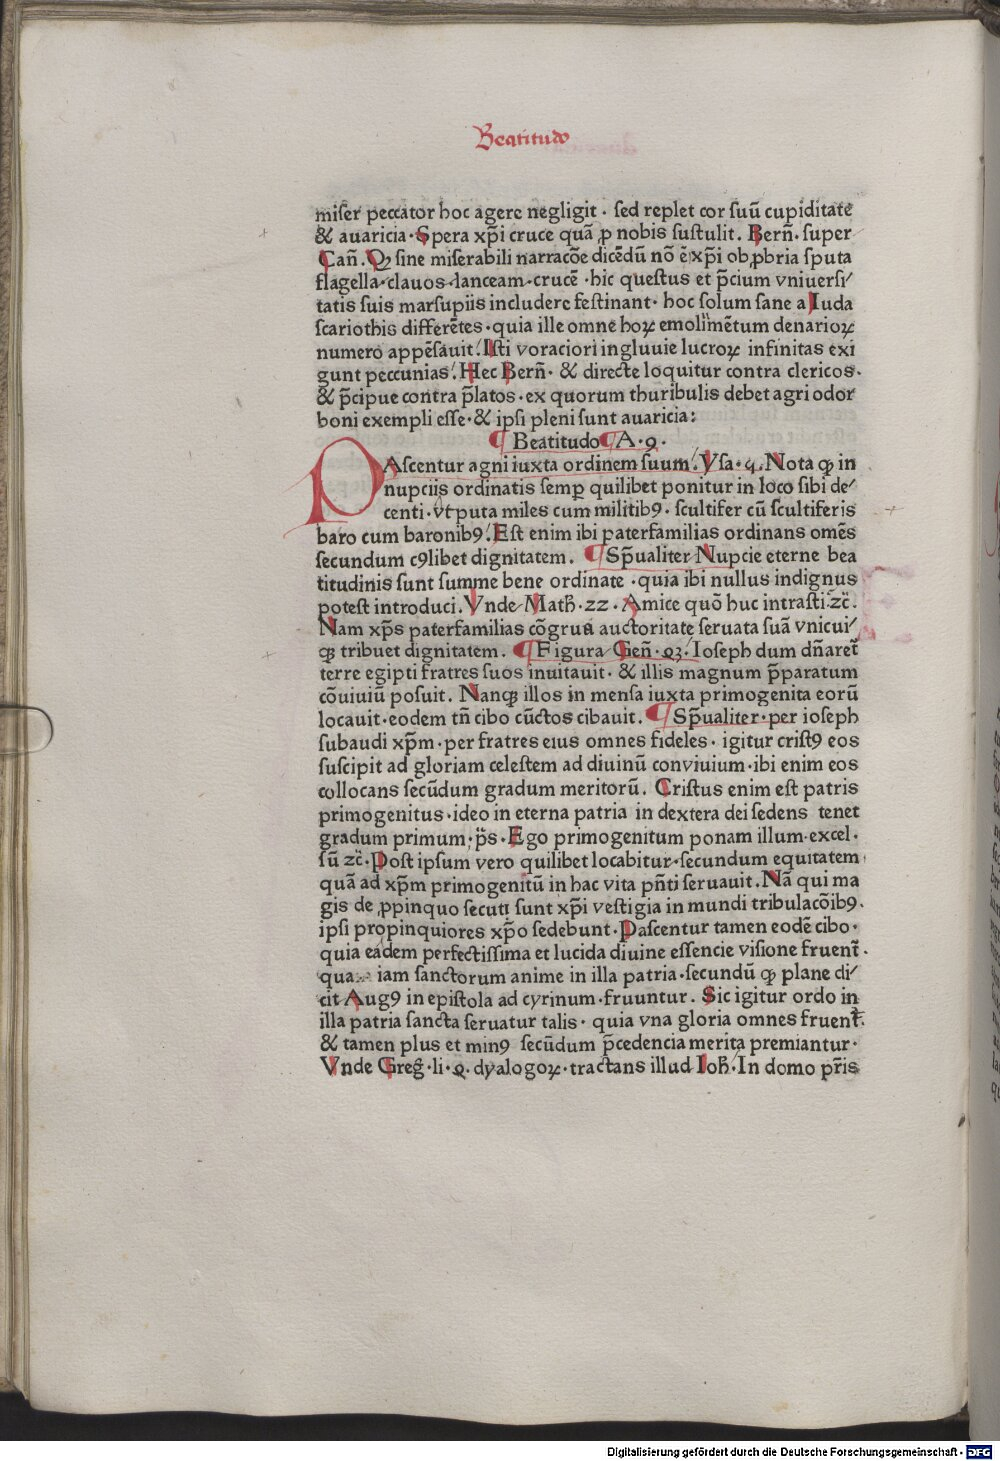 Beatitudo
miser peccator hoc agere negligit · sed replet cor suū cupiditate
& avaricia · Spera xp̄i cruce quā ꝓ nobis sustulit. Bern̄ · super
Can̄ . Qꝫ sine miserabili narracōe dicēdū nō ē xp̄i obꝓbria sputa
flagella · clauos · lanceam · crucē · hic questus et p̄cium vniuersi⸗
tatis suis marsupiis includere festinant · hoc solum sane a Iuda
scariothis differētes · quia ille omne hoꝝ emolimētum denarioꝝ
numero appēsauit. Isti voraciori ingluuie lucroꝝ infinitas exi
gunt peccunias. Hec Bern̄ · & directe loquitur contra clericos ·
& p̄cipue contra p̄latos · ex quorum thuribulis debet agri odor
boni exempli esse · & ipsi pleni sunt auaricia:
¶ Beatitudo ¶ A · 2 ·
PAscentur agni iuxta ordinem suum. Ysa · 4. Nota ꝙ in
nupciis ordinatis semꝑ quilibet ponitur in loco sibi de⸗
centi · vt puta miles cum militibꝰ · scultifer cū scultiferis
baro cum baronibꝰ. Est enim ibi paterfamilias ordinans omēs
secundum cꝰlibet dignitatem. ¶ Sp̄ualiter Nupcie eterne bea
titudinis sunt summe bene ordinate · quia ibi nullus indignus
potest introduci. Vnde Math̄ · 22 · Amice quō huc intrasti · ꝛc̄.
Nam xp̄s paterfamilias cōgrua auctoritate seruata suā vnicui⸗
qꝫ tribuet dignitatem. ¶ Figura Gen̄ · 23 · Ioseph dum dn̄aret̄
terre egipti fratres suos inuitauit · & illis magnum p̄paratum
cōuiuiū posuit. Nanqꝫ illos in mensa iuxta primogenita eorū
locauit · eodem tn̄ cibo cūctos cibauit. ¶ Sp̄ualiter · per ioseph
subaudi xp̄m · per fratres eius omnes fideles · igitur cristꝰ eos
suscipit ad gloriam celestem ad diuinū conviuium · ibi enim eos
collocans secūdum gradum meritorū. Cristus enim est patris
primogenitus · ideo in eterna patria in dextera dei sedens tenet
gradum primum · p̄s · Ego primogenitum ponam illum · excel ·
sū ꝛc̄ · Post ipsum vero quilibet locabitur · secundum equitatem
quā ad xp̄m primogenitū in hac vita pn̄ti seruauit. Nā qui ma
gis de ꝓpinquo secuti sunt xp̄i vestigia in mundi tribulacōibꝰ.
ipsi propinquiores xp̄o sedebunt · Pascentur tamen eodē cibo ·
quia eadem perfectissima et lucida diuine essencie visione fruent̄ ·
qua iam sanctorum anime in illa patria · secundū ꝙ plane di⸗
cit Augꝰ in epistola ad cyrinum · fruuntur. Sic igitur ordo in
illa patria sancta seruatur talis · quia vna gloria omnes fruent̄.
& tamen plus et minꝰ secūdum p̄cedencia merita premiantur ·
Vnde Greḡ · li · 2 · dyalogoꝝ · tractans illud Ioh̄. In domo pr̄is
Digitalisierung gefördert durch die Deutsche Forschungsgemeinschaft · DFG